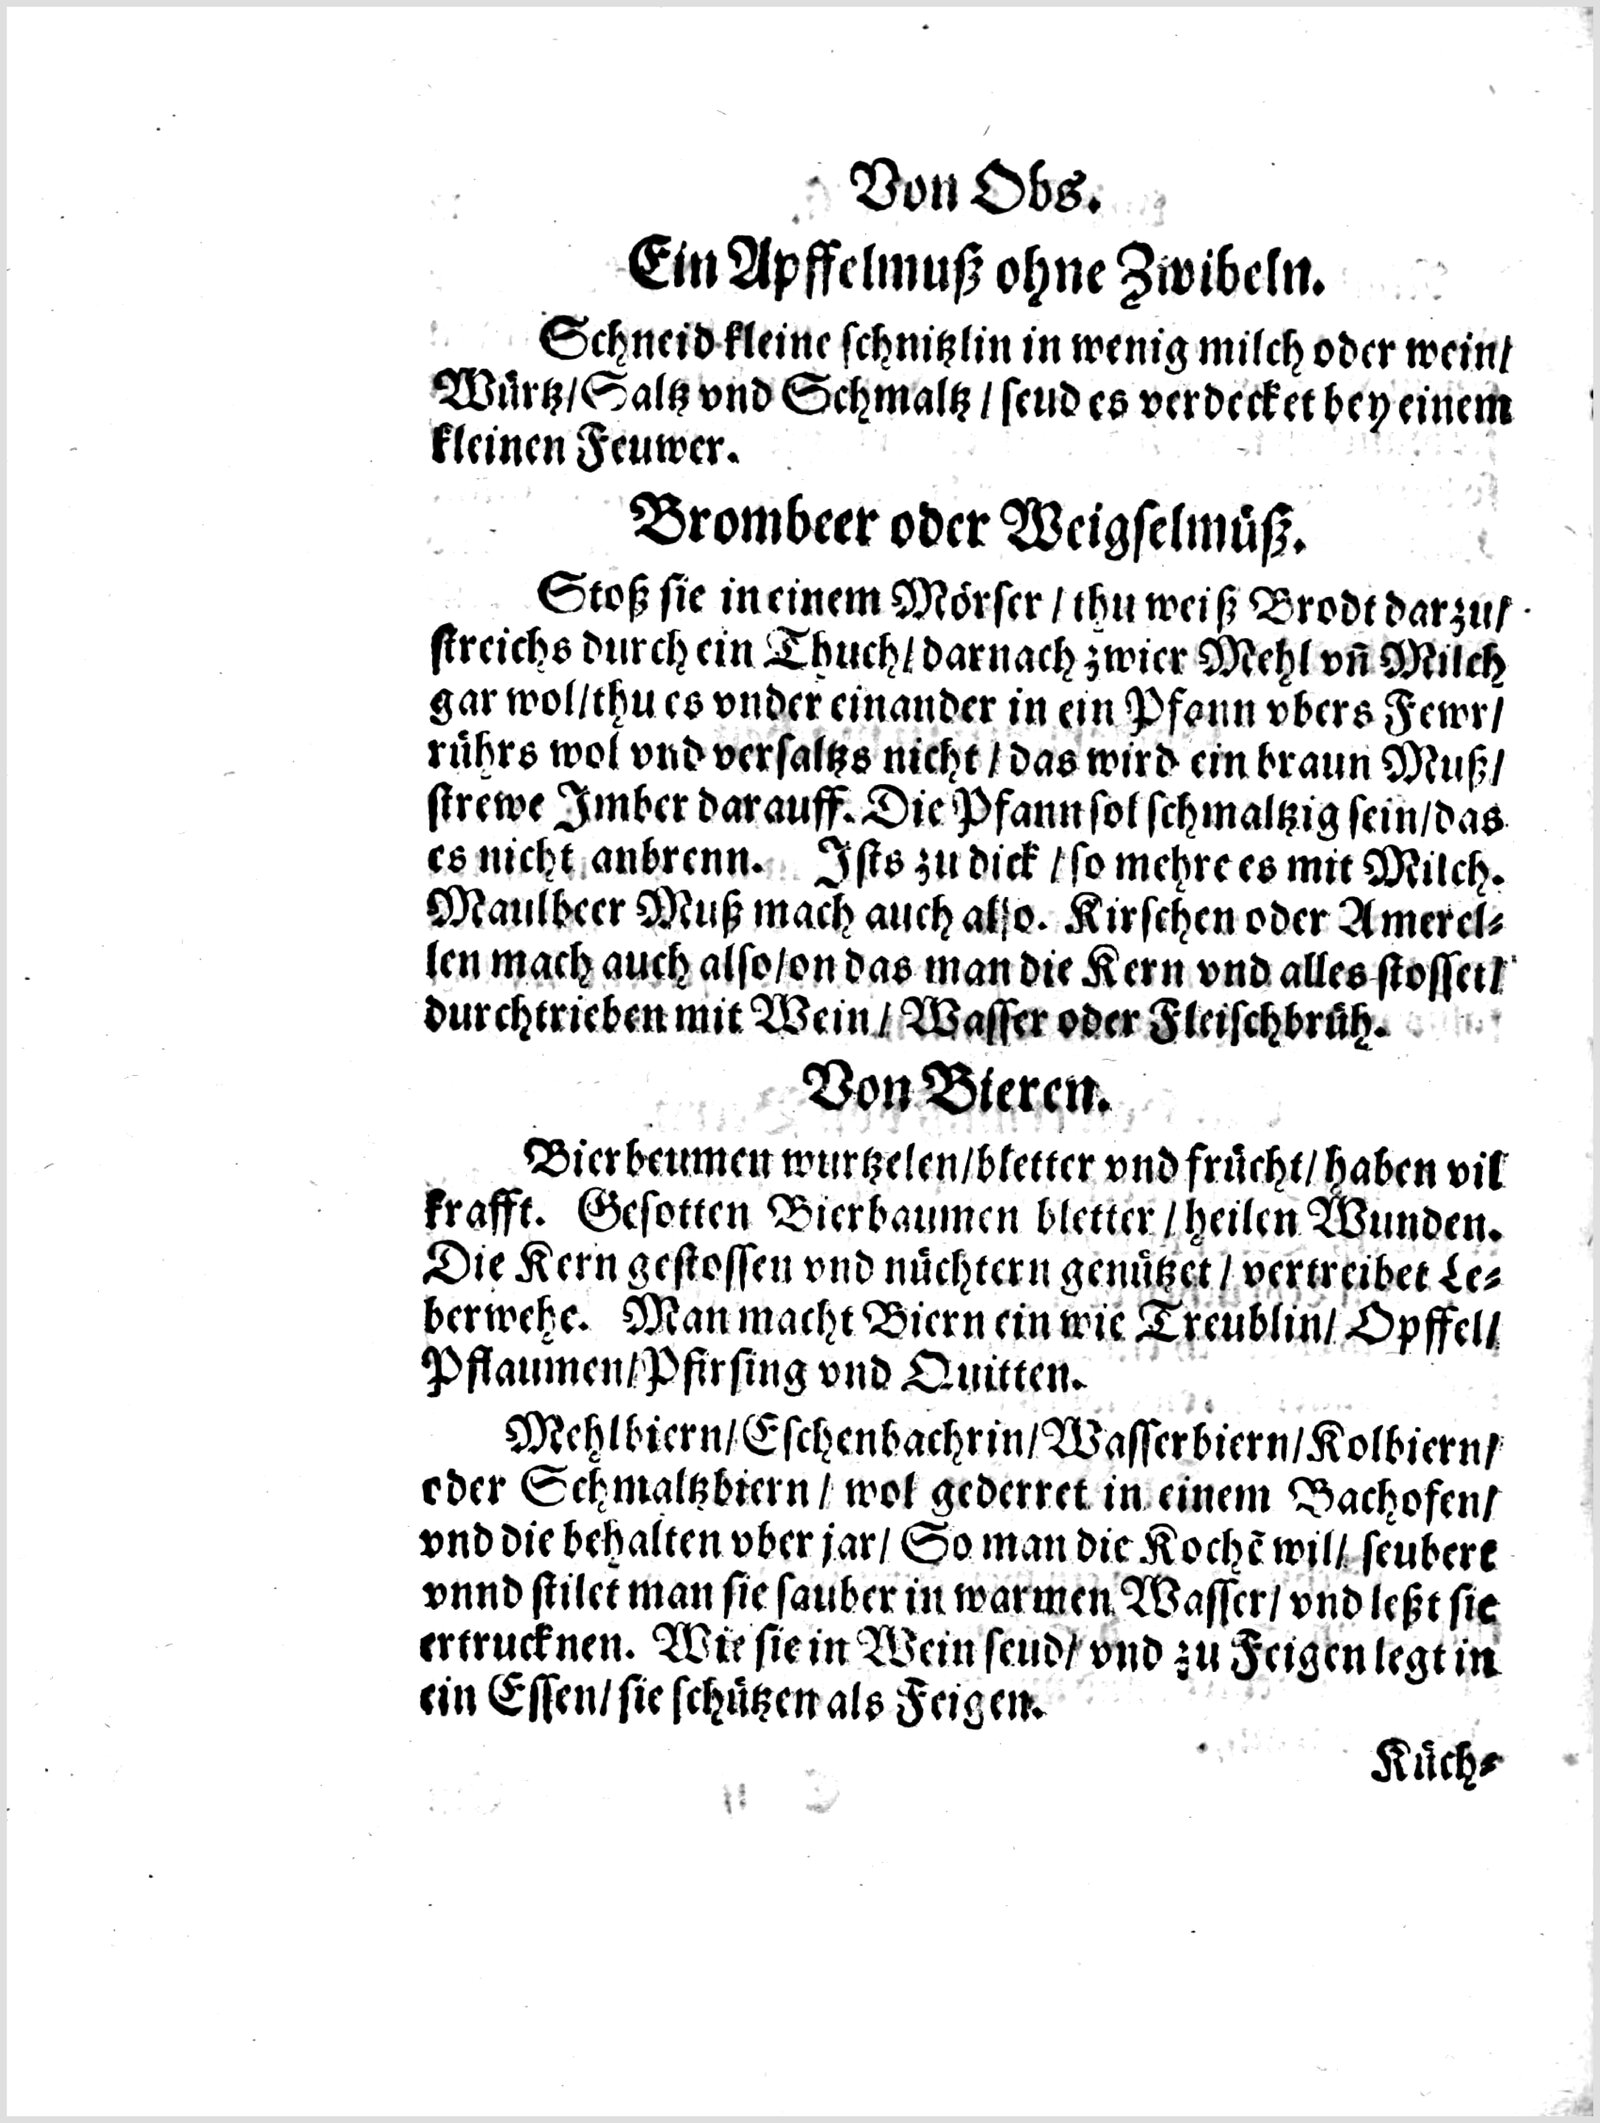 Von Obs.
Ein Apffelmuß ohne Zwibeln.
Schneid kleine schnitzlin in wenig milch oder wein/
Würtz/Saltz vnd Schmaltz/ seud es verdecket bey einem
kleinen Feuwer.
Brombeer oder Weigselmüß.
Stoß sie in einem Mörser/ thu weiß Brodt darzu/
streichs durch ein Thuch/ darnach zwier Mehl vñ Milch
gar wol/thu es vnder einander in ein Pfann vbers Fewr/
rührs wol vnd versaltzs nicht/ das wird ein braun Muß/
strewe Imber darauff. Die Pfann sol schmaltzig sein/das
es nicht anbrenn. Ists zu dick/ so mehre es mit Milch.
Maulbeer Muß mach auch also. Kirschen oder Amerel-
len mach auch also/on das man die Kern vnd alles stosset/
durchtrieben mit Wein/ Wasser oder Fleischbrüh.
Von Bieren.
Bierbeumen wurtzelen/bletter vnd frücht/ haben vil
krafft. Gesotten Bierbaumen bletter/ heilen Wunden.
Die Kern gestossen vnd nüchtern genützet/ vertreibet Le-
berwehe. Man macht Biern ein wie Treublin/ Opffel/
Pflaumen/Pfirsing vnd Quitten.
Mehlbiern/Eschenbachrin/Wasserbiern/Kolbiern/
oder Schmaltzbiern/ wol gederret in einem Bachofen/
vnd die behalten vber jar/ So man die Kochẽ wil/ seubert
vnnd stilet man sie sauber in warmen Wasser/ vnd leßt sie
ertrucknen. Wie sie in Wein seud/ vnd zu Feigen legt in
ein Essen/ sie schützen als Feigen.
Küch-